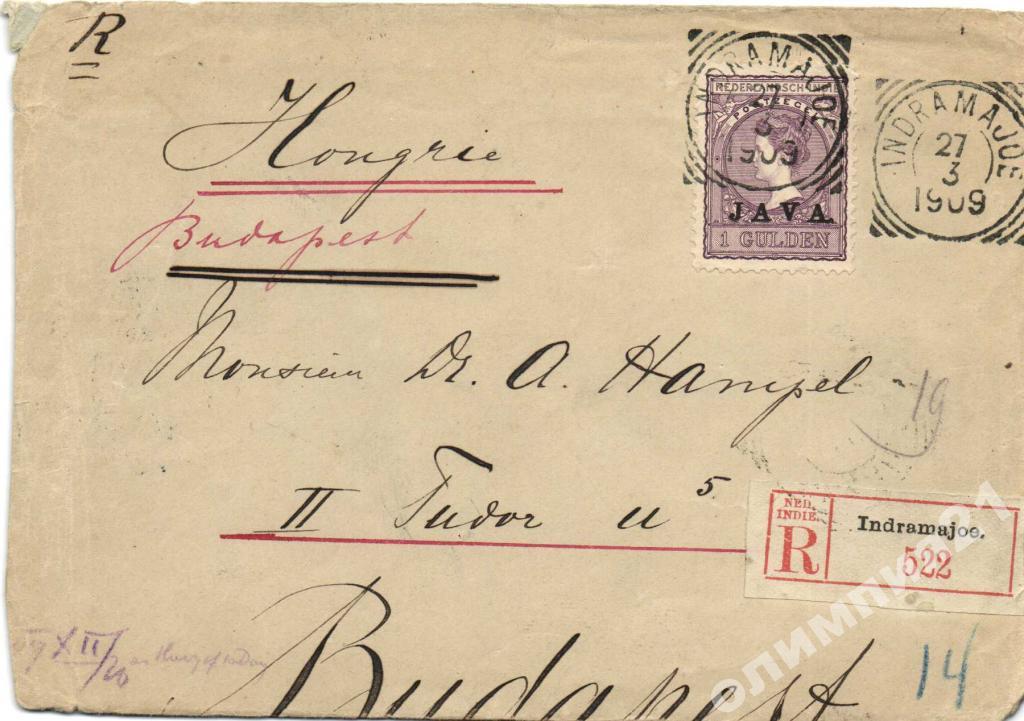 R
NEDERLANDSCH-INDIË
POSTZEGEL
JAVA.
1 GULDEN
INDRAMAJOE
27
3
1909
INDRAMAJOE
27
3
1909
Hongrie
Budapest
Monsieur Dr. A. Hampel
19
II Tudor u 5
NED.
INDIE.
R
Indramajoe.
522
Budapest
XII
14
олимпия21